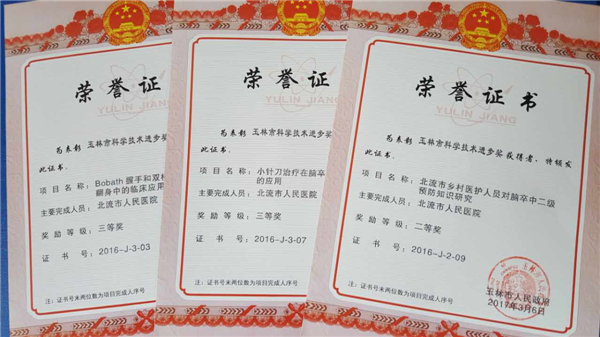 荣誉证
YULIN JIANG
为表彰 玉林市科学技术进步奖
此证书。
项目名称：Bobath握手和双桥
翻身中的临床应用
主要完成人员：北流市人民医院
奖励等级：三等奖
证书号：2016-J-3-03
注：证书号末两位数为项目完成人序号
荣誉证
YULIN JIANG
为表彰 玉林市科学技术进步奖
此证书。
项目名称：小针刀治疗在脑卒
的应用
主要完成人员：北流市人民医院
奖励等级：三等奖
证书号：2016-J-3-07
注：证书号末两位数为项目完成人序号
荣誉证书
YULIN JIANG
为表彰 玉林市科学技术进步奖获得者，特颁发
此证书。
项目名称：北流市乡村医护人员对脑卒中二级
预防知识研究
主要完成人员：北流市人民医院
奖励等级：二等奖
证书号：2016-J-2-09
玉林市人民政府
2017年3月6日
注：证书号末两位数为项目完成人序号